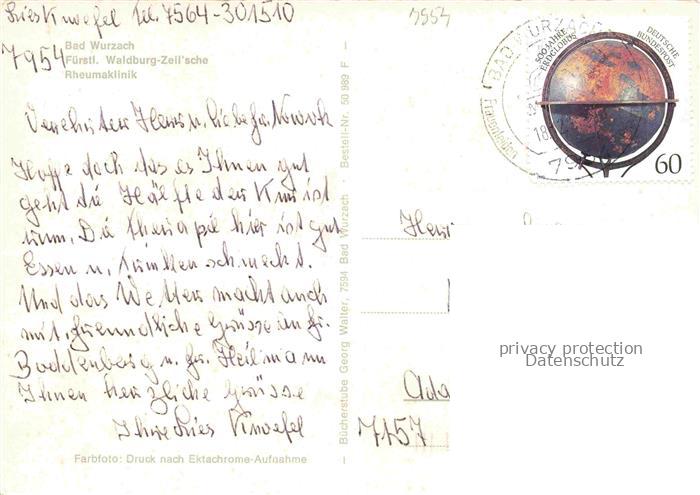 Lies Knoefel Tel. 7564-301510
7954
Bad Wurzach
Fürstl. Waldburg-Zeil'sche
Rheumaklinik
Verehrter Herr u. liebe Fr. Nowok
Hoffe doch das es Ihnen gut
geht die Hälfte der Kur ist
rum. Die Therapie hier ist gut
Essen u. Trinken schmeckt.
Und das Wetter macht auch
mit. freundliche Grüsse an Fr.
Boddenberg u. Fr. Heilmann
Ihnen herzliche Grüsse
Ihre Lies Knoefel
Farbfoto: Druck nach Ektachrome-Aufnahme
Bücherstube Georg Walter, 7594 Bad Wurzach - Bestell-Nr. 50 989 F
BAD WURZACH
18
795
500 JAHRE
ERDGLOBUS
DEUTSCHE
BUNDESPOST
60
Herr
7157
privacy protection
Datenschutz